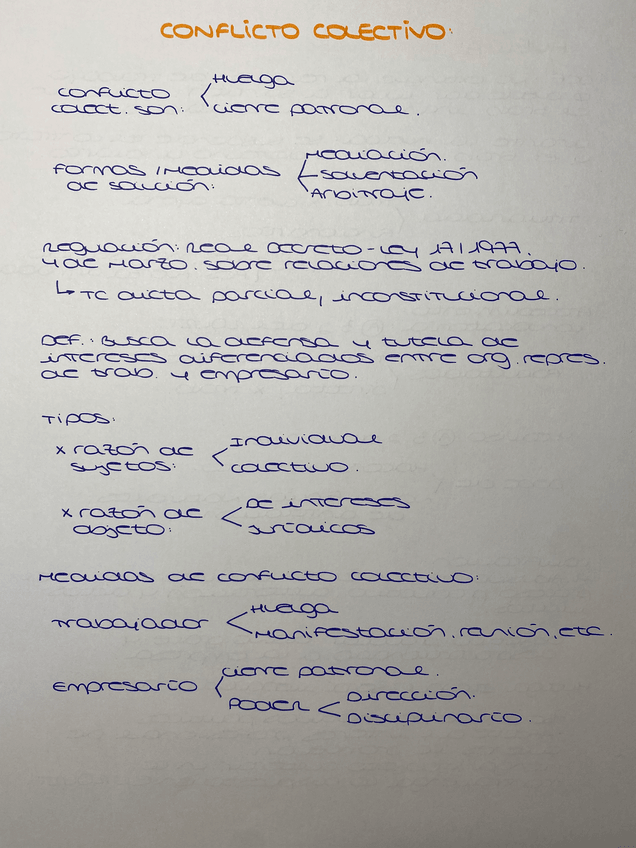 CONFLICTO COLECTIVO:
CONFLICTO
COLECT. SON:
HUELGA
CIERRE PATRONAL.
FORMAS / MEDIDAS
DE SOLUCIÓN:
MEDIACIÓN.
ARBITRAJE.
REGULACIÓN: REAL DECRETO-LEY 17/1977.
4 DE MARZO. SOBRE RELACIONES DE TRABAJO.
↳ TC DICTA PARCIAL, INCONSTITUCIONAL.
DEF.: BUSCA LA DEFENSA Y TUTELA DE
INTERESES DIFERENCIADOS ENTRE ORG. REPRES.
DE TRAB. Y EMPRESARIO.
TIPOS:
x RAZÓN DE
SUJETOS:
INDIVIDUAL
COLECTIVO.
x RAZÓN DE
OBJETO:
DE INTERESES
JURÍDICOS
MEDIDAS DE CONFLICTO COLECTIVO:
TRABAJADOR
HUELGA
MANIFESTACIÓN, REUNIÓN, ETC.
EMPRESARIO
CIERRE PATRONAL.
PODER
DIRECCIÓN.
DISCIPLINARIO.